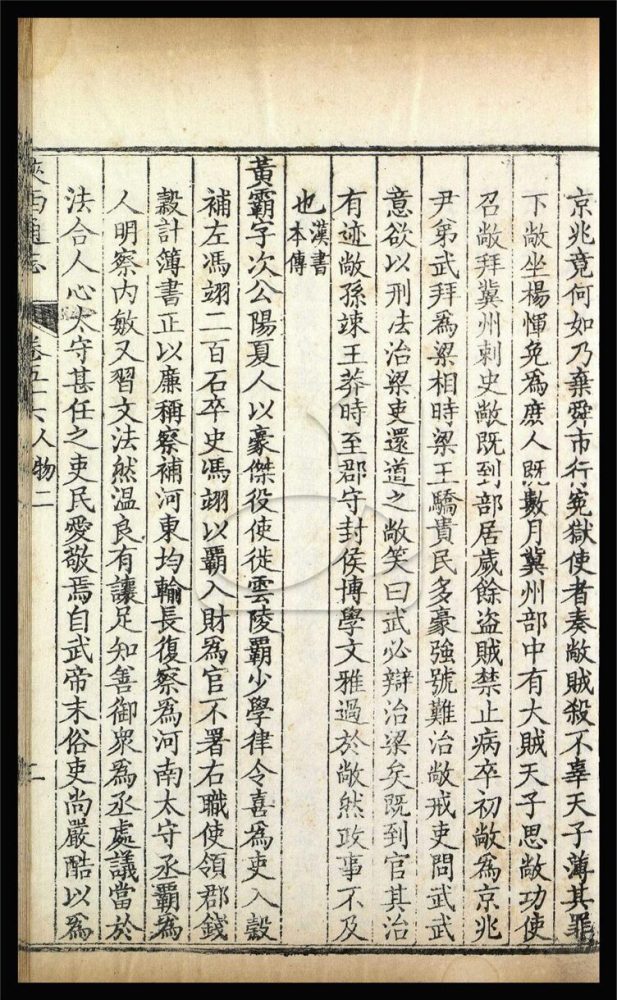 京兆竟何如乃棄舜市行冤獄使者奏敞賊殺不辜天子薄其罪
下敞坐楊惲免為庶人既數月冀州部中有大賊天子思敞功使
召敞拜冀州刺史敞既到部居歲餘盜賊禁止病卒初敞為京兆
尹弟武拜為梁相時梁王驕貴民多豪強號難治敞戒吏問武武
意欲以刑法治梁吏還道之敞笑曰武必辯治梁矣既到官其治
有迹敞孫竦王莽時至郡守封侯博學文雅過於敞然政事不及
也漢書本傳
黃霸字次公陽夏人以豪傑役使徙雲陵霸少學律令喜為吏入穀
補左馮翊二百石卒史馮翊以霸入財為官不署右職使領郡錢
穀計簿書正以廉稱察補河東均輸長復察為河南太守丞霸為
人明察內敏又習文法然溫良有讓足知善御眾為丞處議當於
法合人心太守甚任之吏民愛敬焉自武帝末俗吏尚嚴酷以為
陝西通志 卷五十六人物二 二